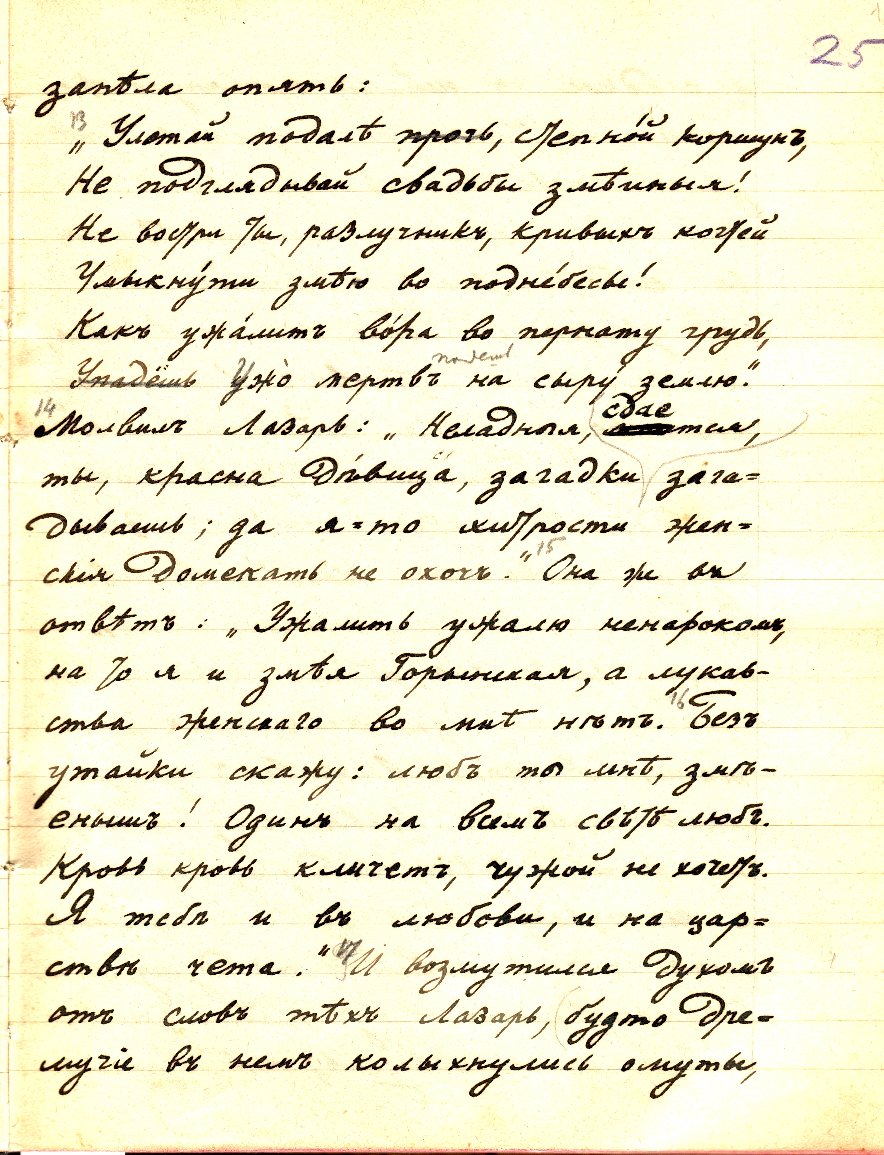 25
запѣла опять:
13
„Улетай подалѣ прочь, степно́й коршунъ,
Не подглядывай свадьбы змѣиныя!
Не востри ты, разлучникъ, кривыхъ когтей
Умыкну́ти змѣю во подне́бесье!
Какъ ужа́литъ во́ра во пернату грудь,
падешь
Упадёшь Ужо̀ мертвъ на сыру́ землю."
14
сдае
Молвилъ Лазарь: „Неладныя, тся,
ты, красна Дѣвица, загадки зага=
дываешь; да я=то хитрости жен=
скія Домекать не охочъ." 15 Она же въ
отвѣтъ: „Ужалить ужалю ненарокомъ,
на то я и змѣя Горынская, а лукав-
ства женскаго во мнѣ нѣтъ. 16 Безъ
утайки скажу: любъ ты мнѣ, змѣ-
енышъ! Одинъ на всемъ свѣтѣ любъ.
Кровь кровь кличетъ, чужой не хочетъ.
Я тебѣ и въ любови, и на цар=
ствѣ чета." 17 И возмутился Духомъ
отъ словъ тѣхъ Лазарь, будто Дре=
мучіе въ немъ колыхнулись омуты,